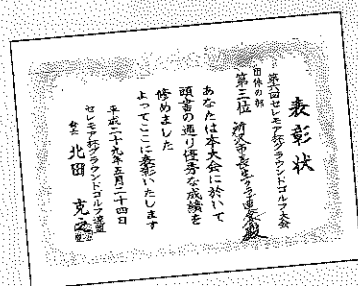 表彰状
第六回セレモア杯グラウンドゴルフ大会
団体の部
第三位 所沢市長生クラブ連合会殿
あなたは本大会に於いて
頭書の通り優秀な成績を
修めました
よってここに表彰いたします
平成二十九年五月二十四日
セレモア杯グラウンドゴルフ連盟
会長 北田